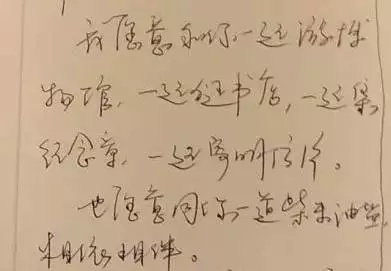 我愿意和你一道游博
物馆，一道逛书店，一道集
纪念章，一道寄明信片。
也愿意同你一道柴米油盐，
相依相伴。